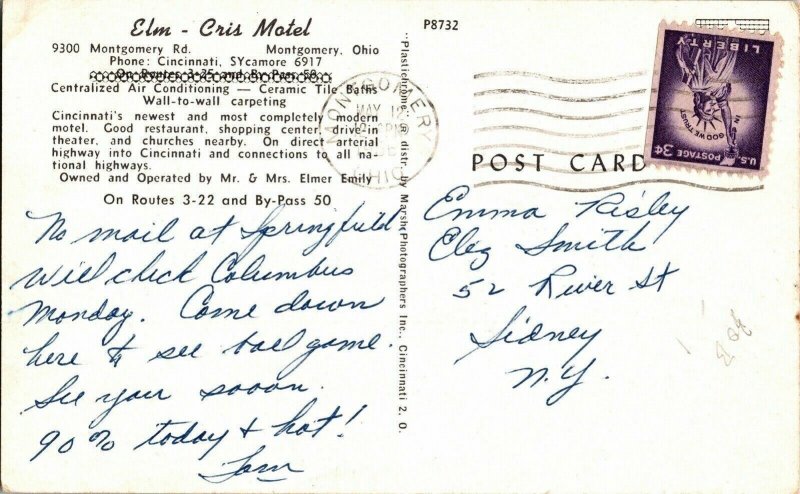 Elm - Cris Motel
9300 Montgomery Rd. Montgomery, Ohio
Phone: Cincinnati, SYcamore 6917
On Routes 3-25 and By-Pass 50
Centralized Air Conditioning — Ceramic Tile Baths
Wall-to-wall carpeting
Cincinnati's newest and most completely modern
motel. Good restaurant, shopping center, drive-in
theater, and churches nearby. On direct arterial
highway into Cincinnati and connections to all na-
tional highways.
Owned and Operated by Mr. & Mrs. Elmer Emily
On Routes 3-22 and By-Pass 50
No mail at Springfield
Will check Columbus
Monday. Come down
here & see ball game.
See you sooon.
90% today & hot!
"Plastichrome" ® distr. by Marsh Photographers Inc., Cincinnati 2, O.
P8732
MONTGOMERY
MAY 12
PM
OHIO
LIBERTY
IN GOD WE TRUST
U.S. POSTAGE 3¢
POST CARD
Emma Risley
Clez Smith
52 River St
Sidney
N.Y.